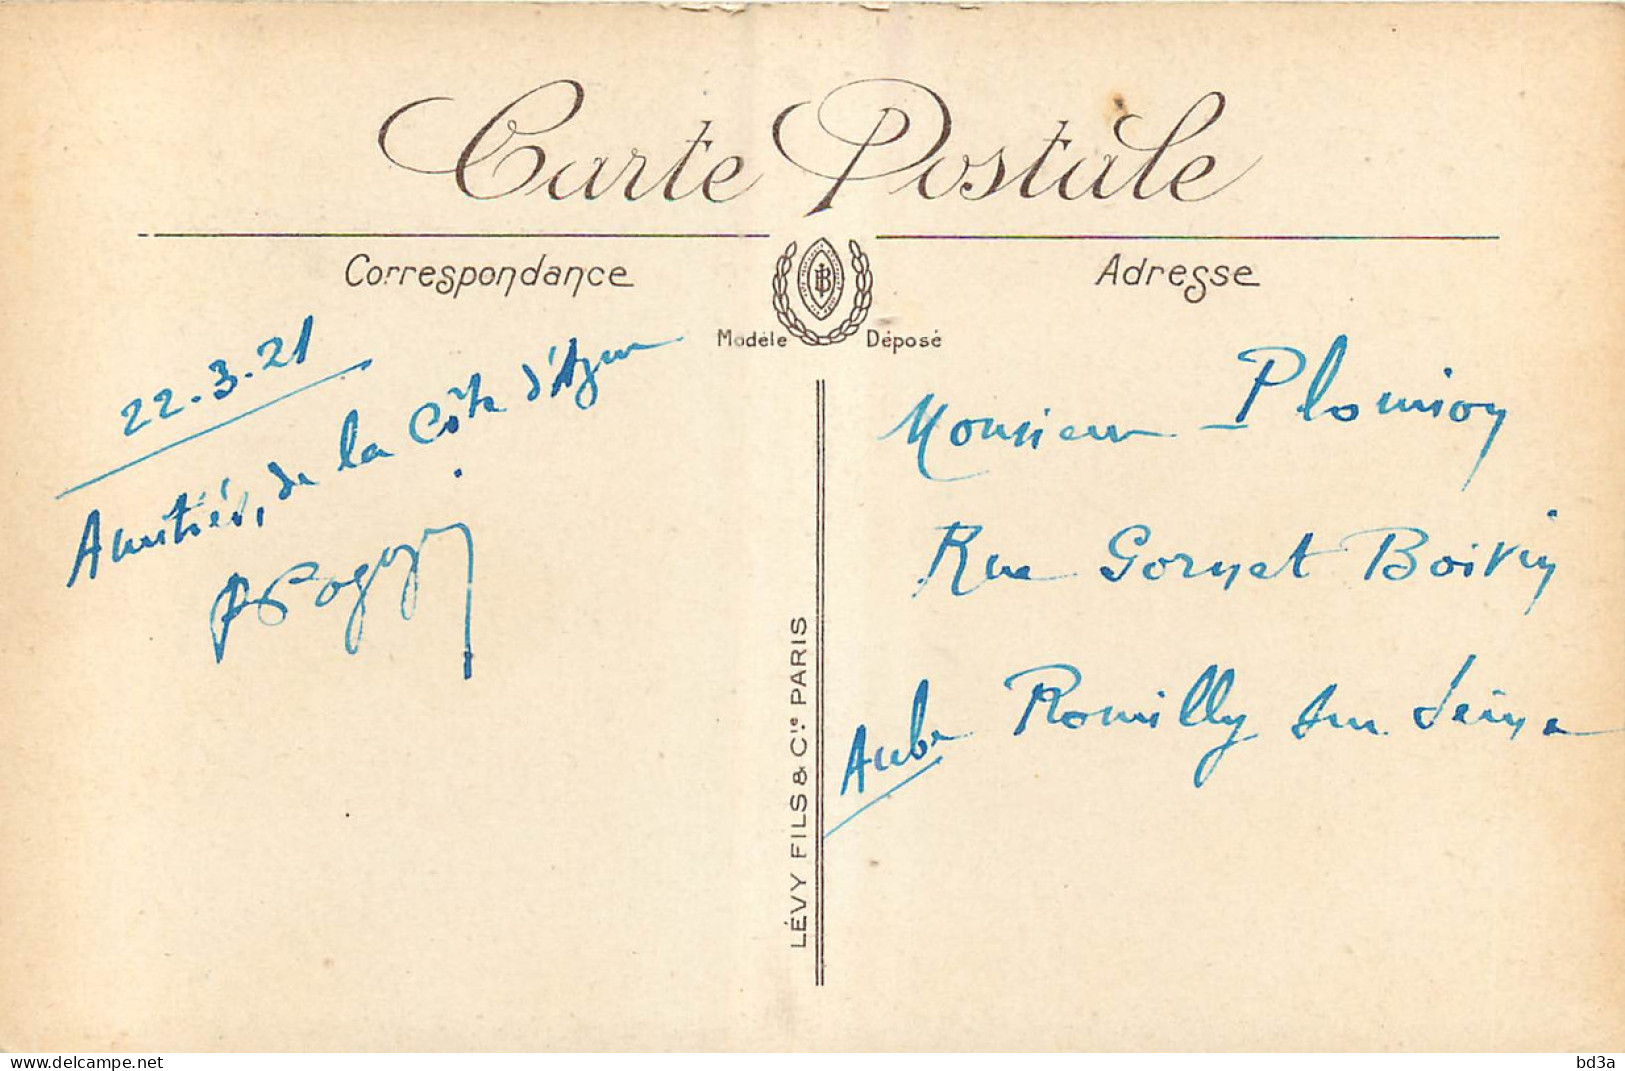 Carte Postale
Correspondance
Adresse
Modèle Déposé
22.3.21
Amitiés, de la Côte d'Azur
Monsieur Plomion
Rue Gornet Boivin
Romilly sur Seine
Aube
LÉVY FILS & Cie PARIS
www.delcampe.net
bd3a